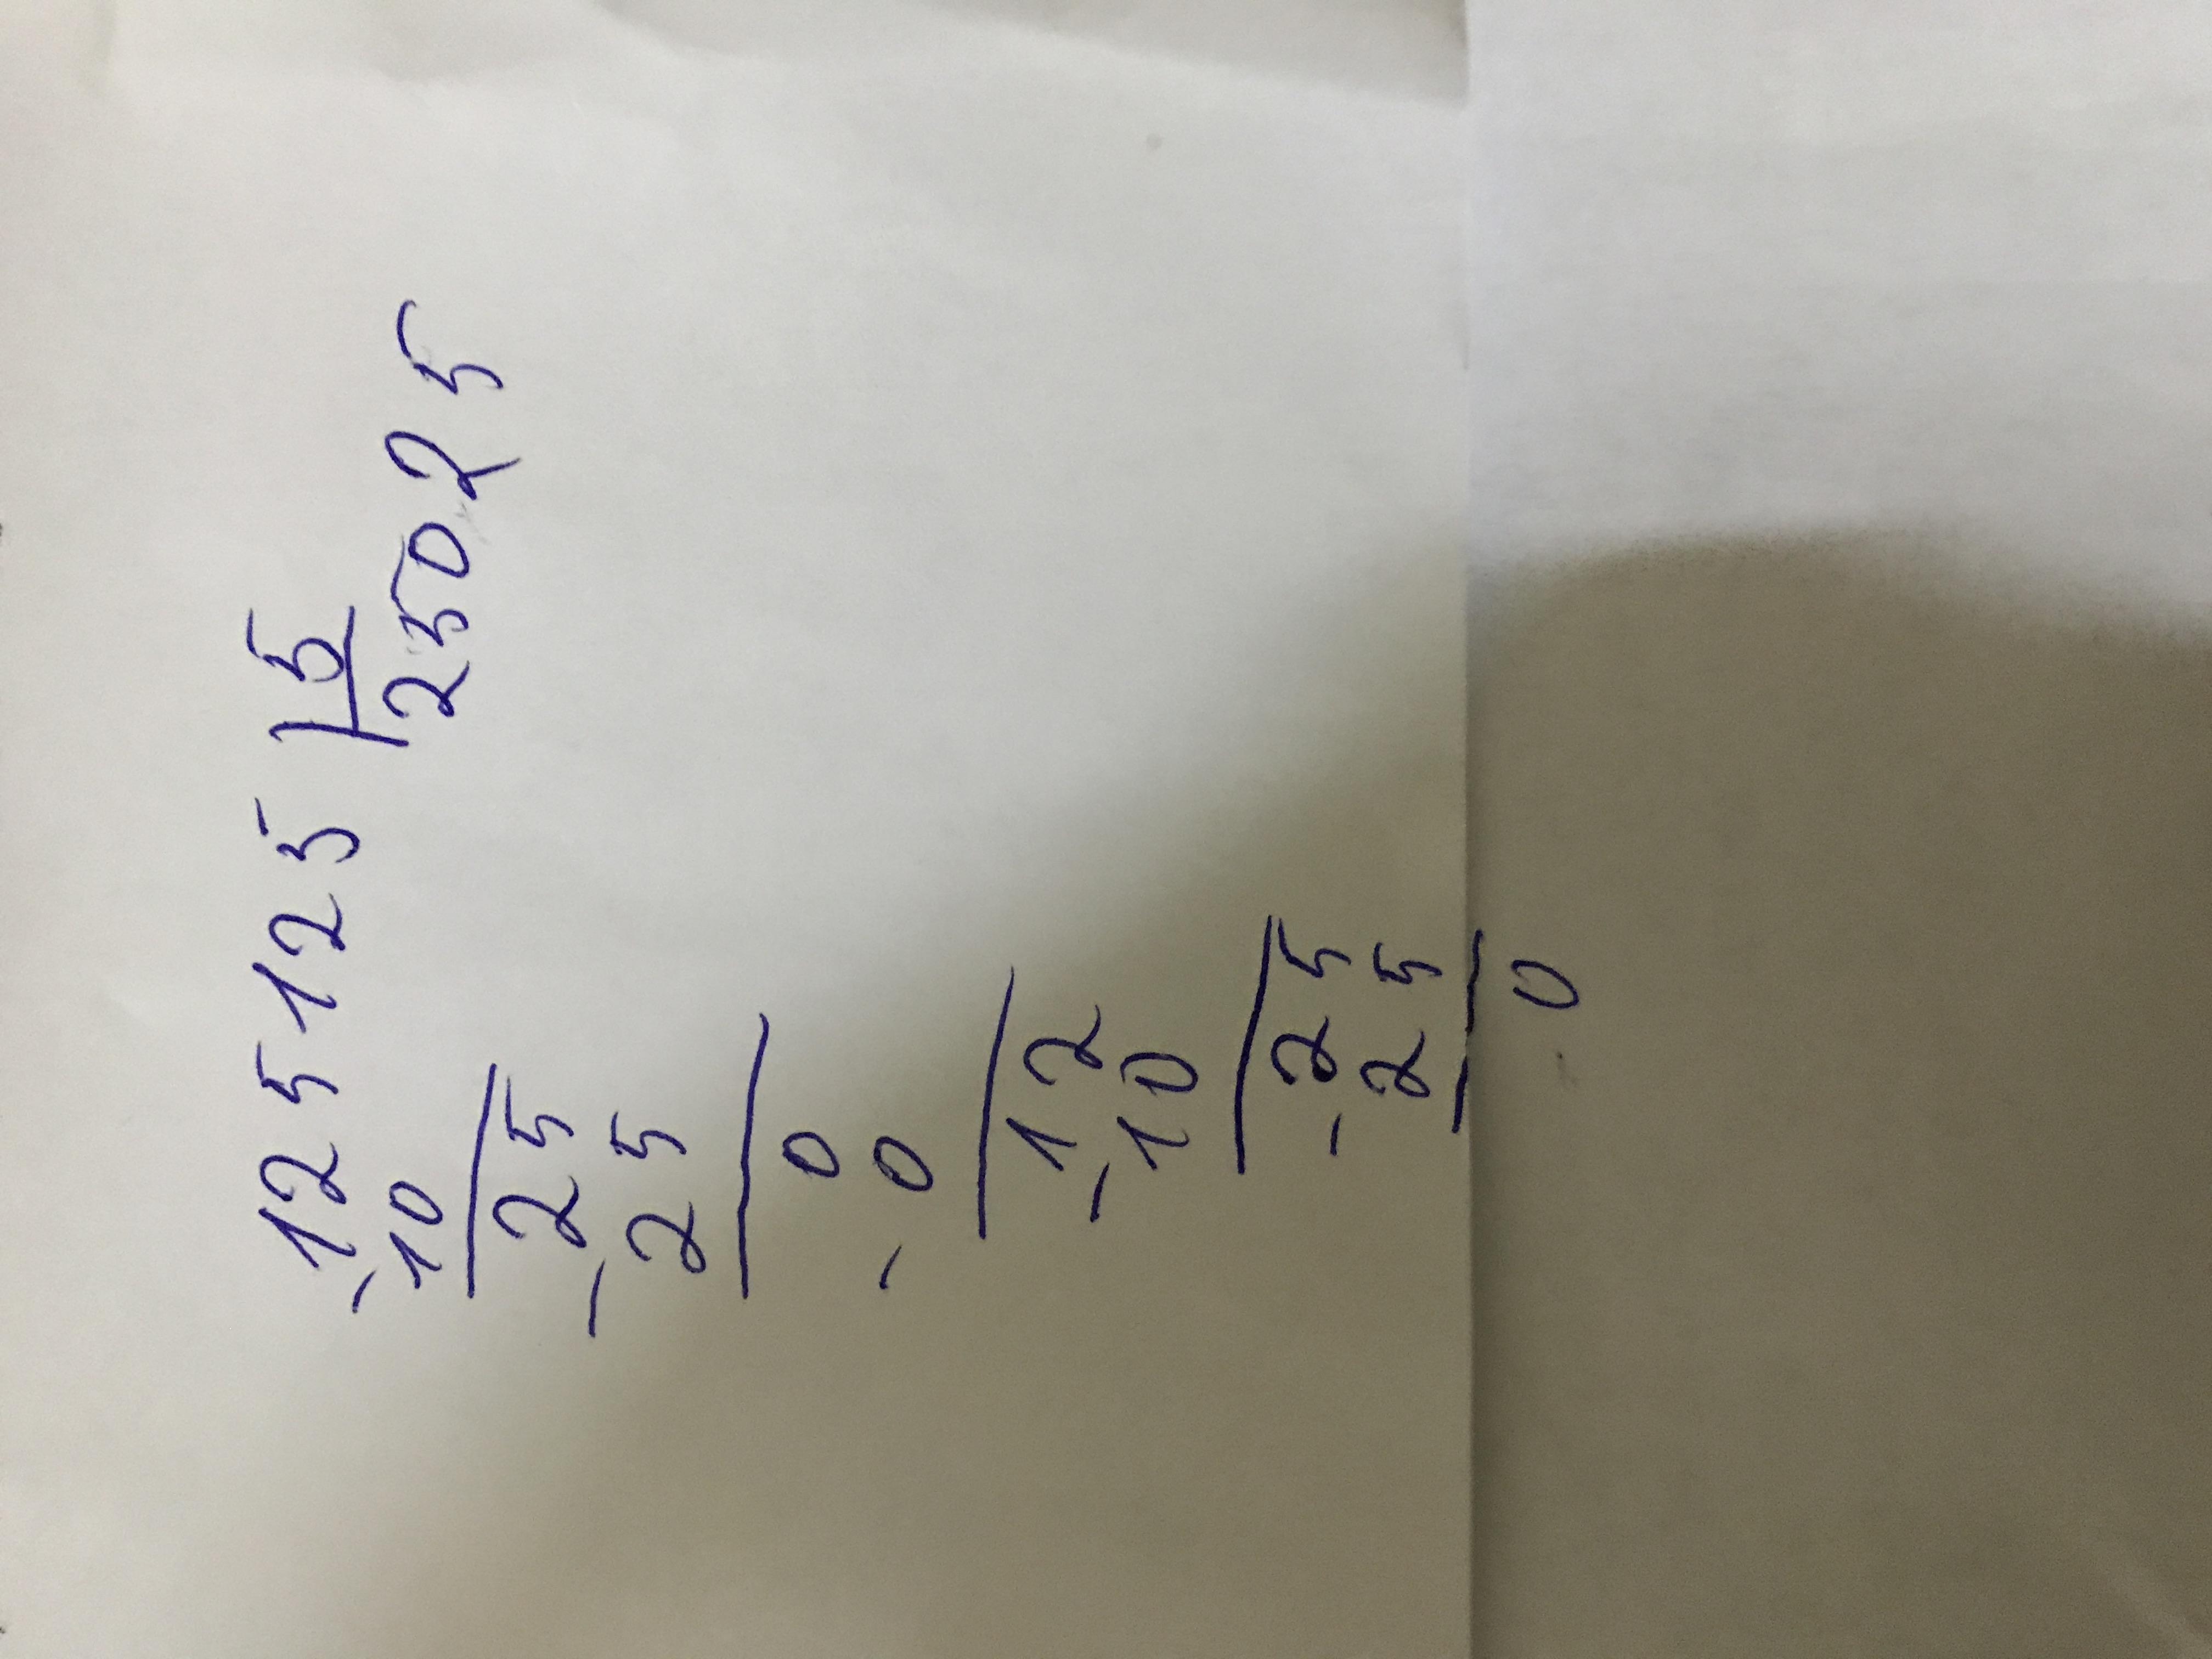 125125 | 5
-10 25025
25
- 25
0
- 0
12
- 10
25
- 25
0